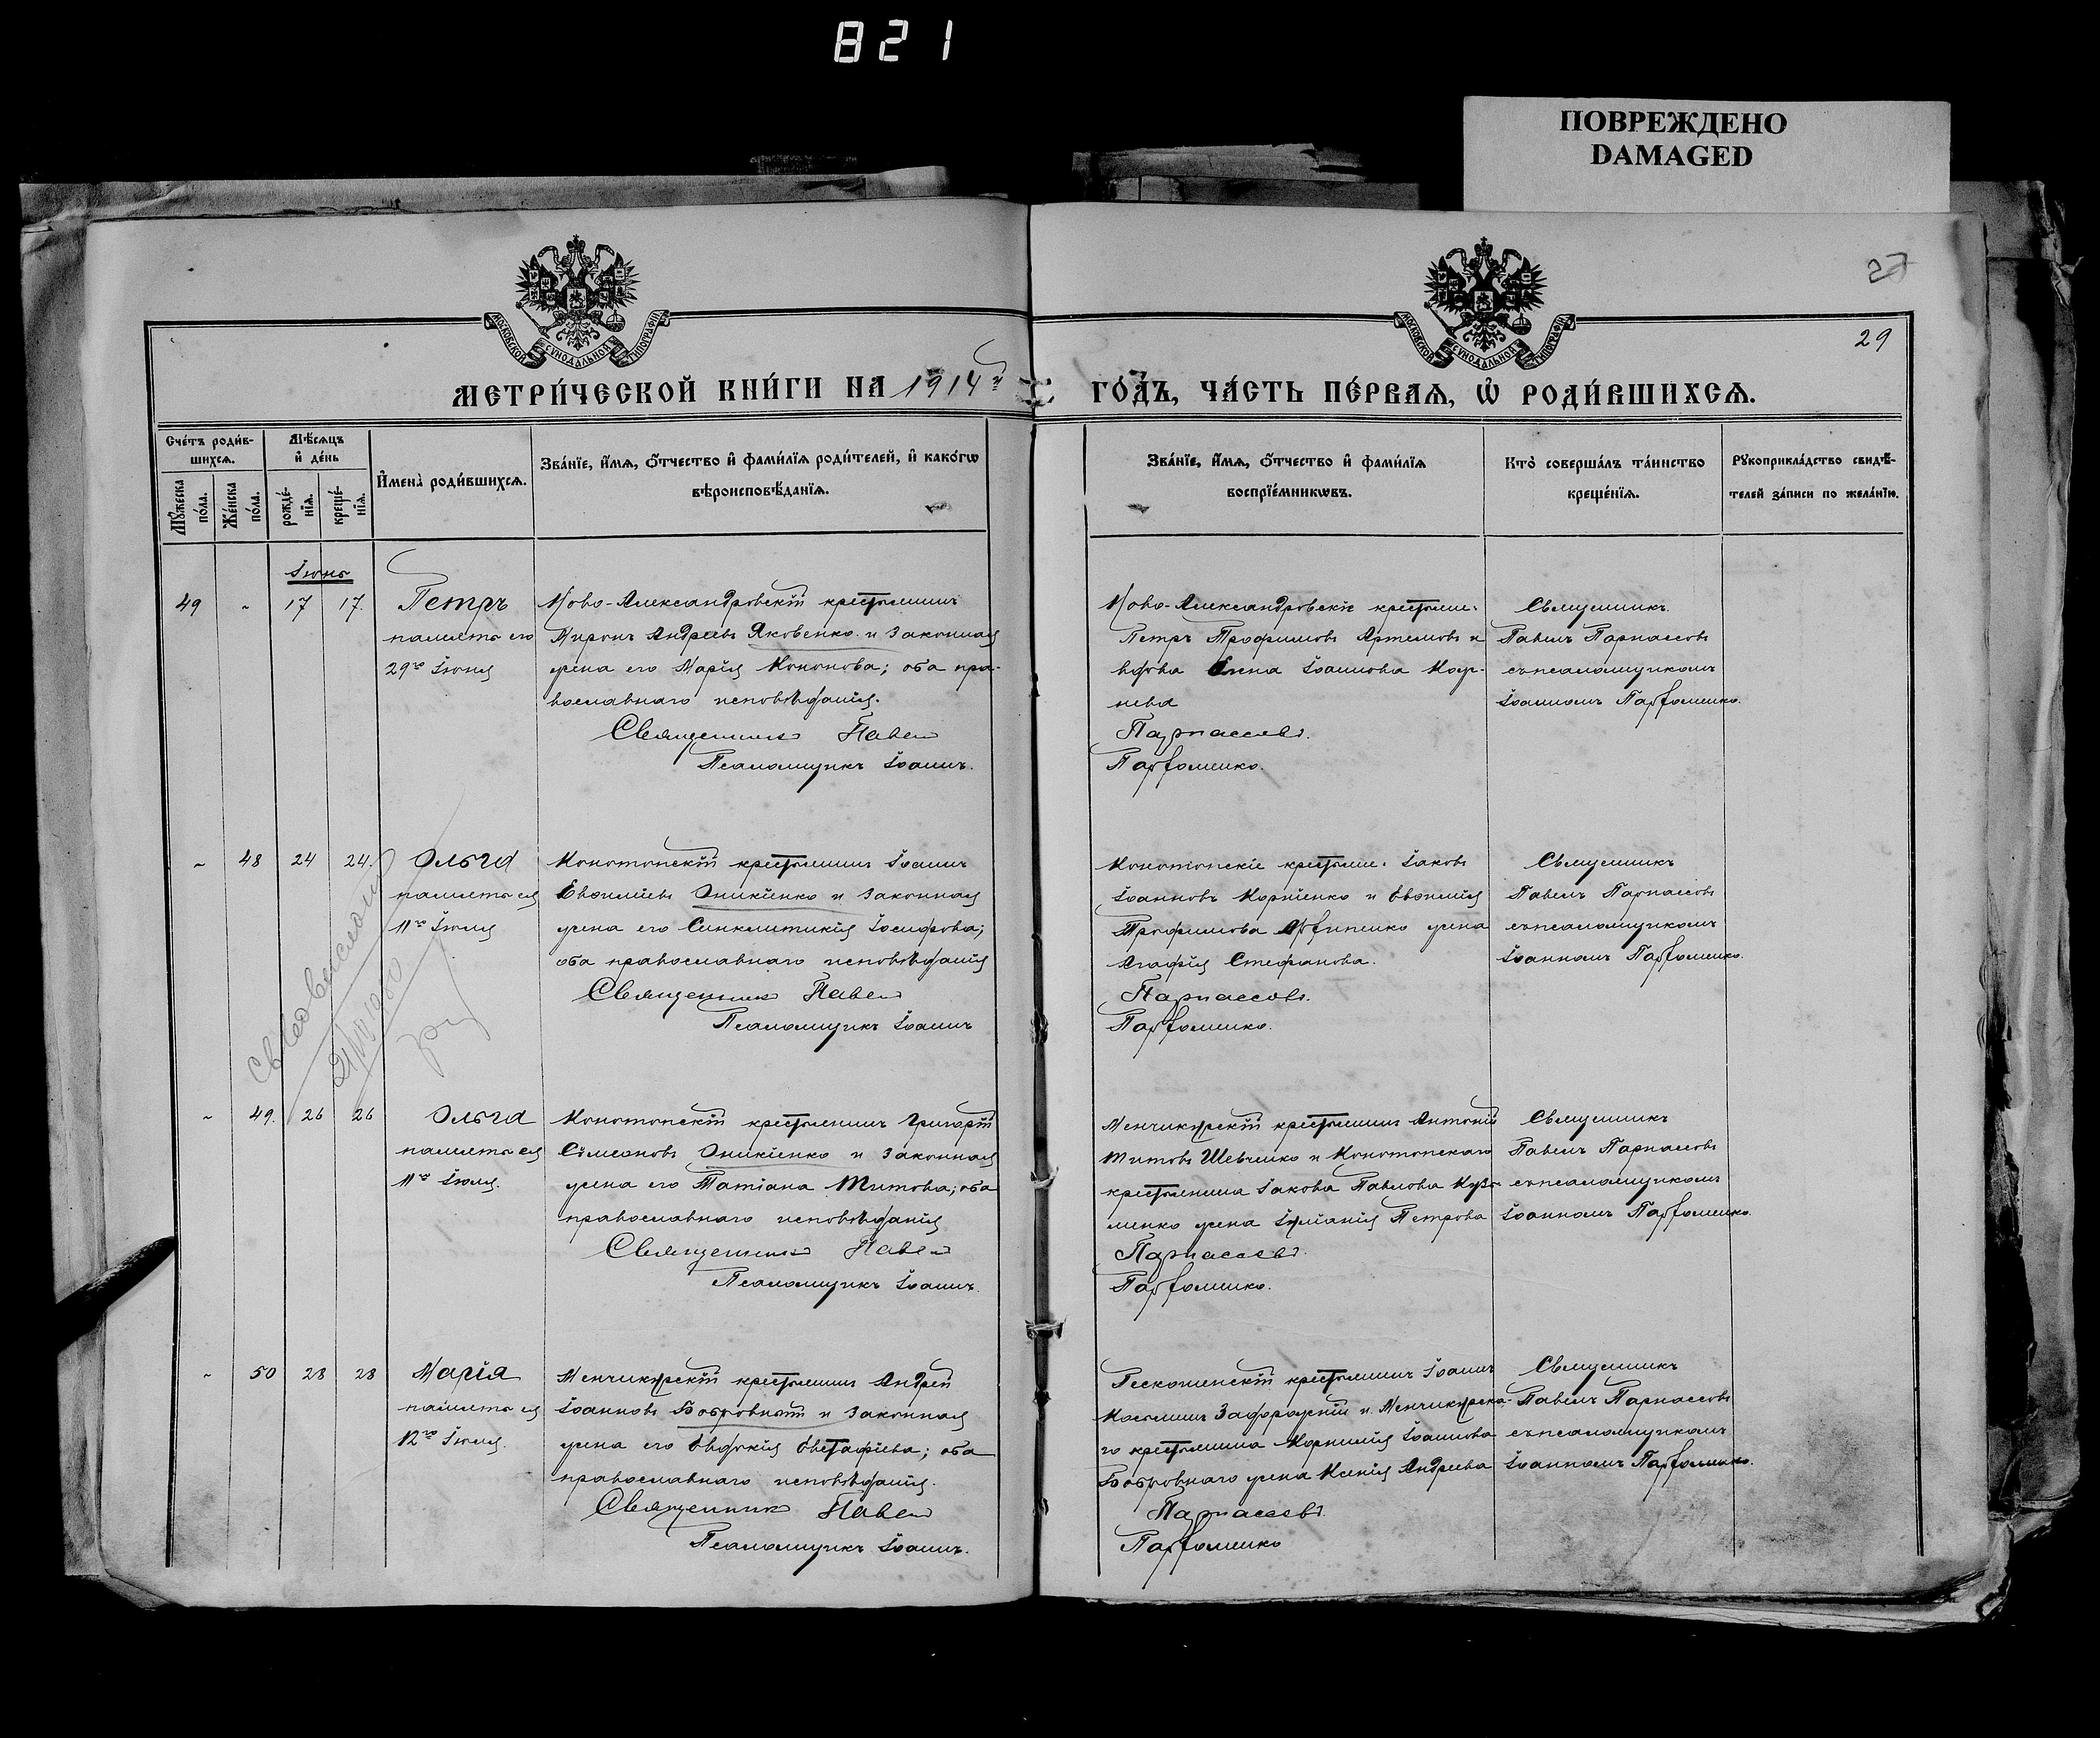 821
ПОВРЕЖДЕНО
DAMAGED
27
29
МОСКОВСКОЙ СУНОДАЛЬНОЙ ТИПОГРАФІИ
МОСКОВСКОЙ СУНОДАЛЬНОЙ ТИПОГРАФІИ
МЕТРИ́ЧЕСКОЙ КНИ́ГИ НА 1914й ГО́ДЪ, ЧА́СТЬ ПЕ́РВАѦ, Ѡ҆ РОДИ́ВШИХСѦ.
Сче́тъ роди́в-
шихсѧ.
Мѣ́сѧцъ
и҆ де́нь
Мꙋ́жеска по́ла.
Же́нска по́ла.
рожде́-
нїѧ.
креще́-
нїѧ.
И҆мена̀ роди́вшихсѧ.
Зва́нїе, и҆́мѧ, ѻ҆́тчество и҆ фами́лїѧ роди́телей, и҆ како́гѡ
вѣроисповѣ́данїѧ.
Зва́нїе, и҆́мѧ, ѻ҆́тчество и҆ фами́лїѧ
воспрїе́мникѡвъ.
Кто̀ соверша́лъ та́инство
креще́нїѧ.
Рꙋкоприкла́дство свидѣ́-
телей за́писи по жела́нїю.
Іюнь
49 " 17 17. Петръ
память его
29го Іюня
Ново-Александровскій крестьянинъ
Миронъ Андреевъ Яковенко и законная
жена его Марія Кононова; оба пра-
вославнаго исповѣданія.
Священникъ Павел
Псаломщикъ Іоаннъ.
Ново-Александровскіе крестьяне:
Петръ Трофимовъ Артемовъ и
вдова Елена Іоаннова
нева
Парнассовъ.
Парфоменко.
Священникъ
Павелъ Парнассовъ
съ псаломщикомъ
Іоанномъ Парфоменко.
" 48 24 24. Ольга
память ея
11го Іюля
Конотопскій крестьянинъ Іоаннъ
Евфиміевъ Оникіенко и законная
жена его Синклитикія Іосифова;
оба православнаго исповѣданія
Священникъ Павел
Псаломщикъ Іоаннъ
Конотопскіе крестьяне: Іаковъ
Іоанновъ Корніенко и Евфимія
Трофимова жена
Агафія Стефанова.
Парнассовъ.
Парфоменко.
Священникъ
Павелъ Парнассовъ
съ псаломщикомъ
Іоанномъ Парфоменко.
" 49. 26 26 Ольга
память ея
11го Іюля.
Конотопскій крестьянинъ Григорій
Симеоновъ Оникіенко и законная
жена его Татіана Титова; оба
православнаго исповѣданія
Священникъ Павел
Псаломщикъ Іоаннъ.
Менчикурскій крестьянинъ Антоній
Титовъ Шевченко и Конотопскаго
крестьянина Іакова Павлова Кузь-
менко жена Іуліанія Петрова
Парнассовъ.
Парфоменко.
Священникъ
Павелъ Парнассовъ
съ псаломщикомъ
Іоанномъ Парфоменко.
" 50 28 28 Марія
память ея
12го Іюля.
Менчикурскій крестьянинъ Андрей
Іоанновъ Бобровный и законная
жена его Евдокія Евстафіева; оба
православнаго исповѣданія.
Священникъ Павел
Псаломщикъ Іоаннъ.
крестьянинъ Іоаннъ
Косминъ и Менчикурска-
го крестьянина Корнилія Іоаннова
Бобровнаго жена Ксенія Андреева
Парнассовъ.
Парфоменко
Священникъ
Павелъ Парнассовъ
съ псаломщикомъ
Іоанномъ Парфоменко.